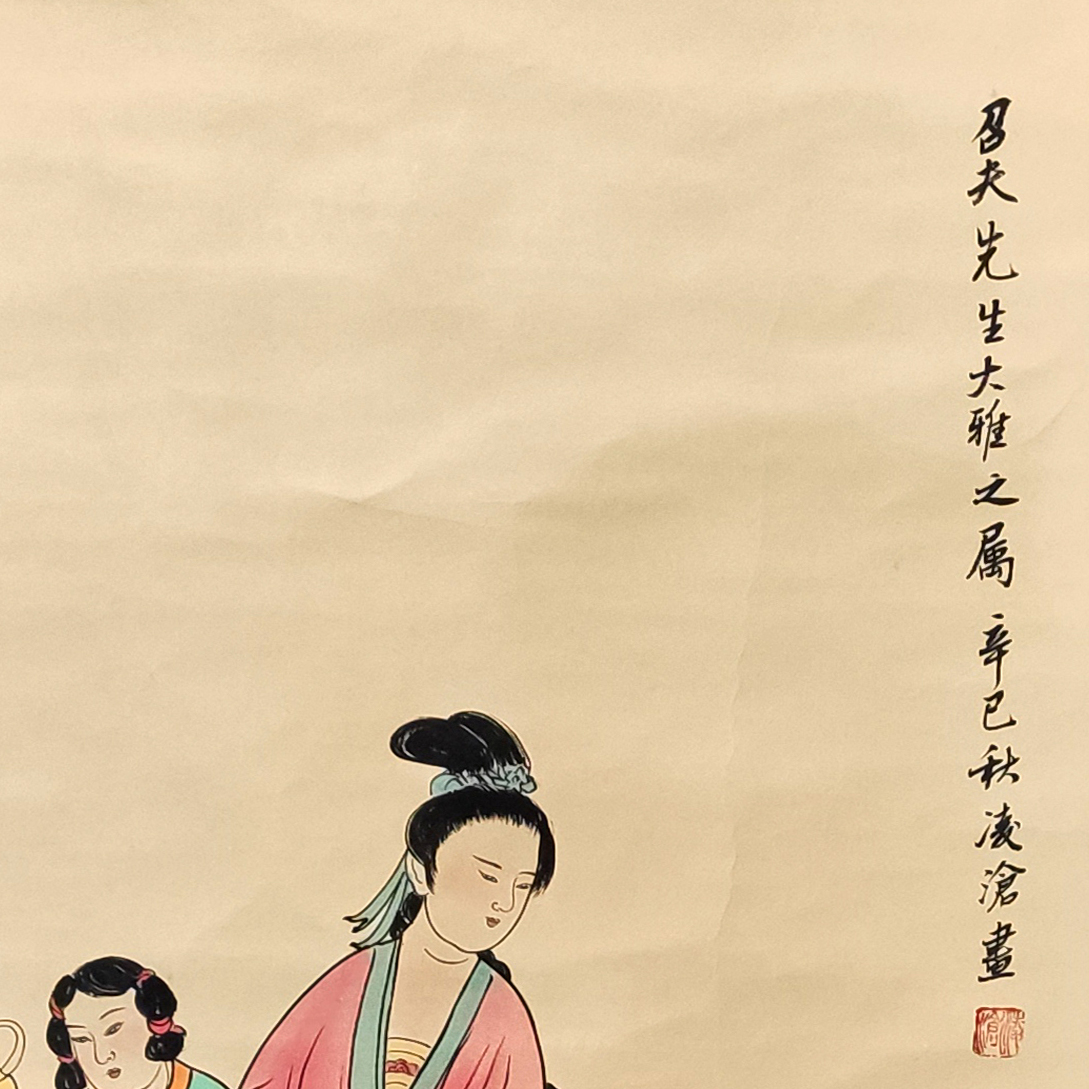 召夫先生大雅之属辛巳秋凌滄畫